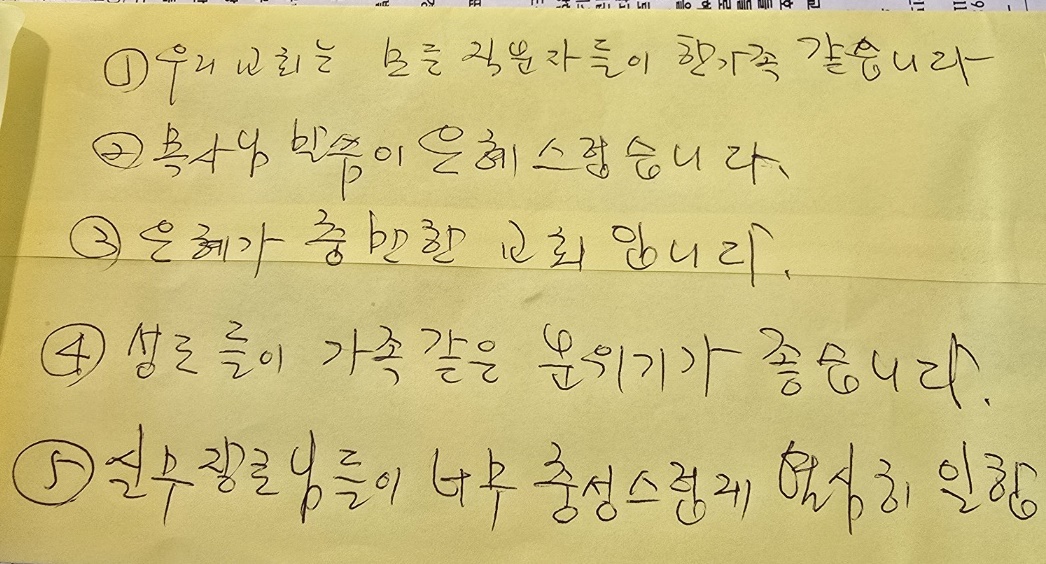 ① 우리 교회는 모든 직분자들이 한가족 같습니다
② 목사님 말씀이 은혜스럽습니다.
③ 은혜가 충만한 교회 입니다.
④ 성도들이 가족같은 분위기가 좋습니다.
⑤ 실무장로님들이 너무 충성스럽게 열심히 일함